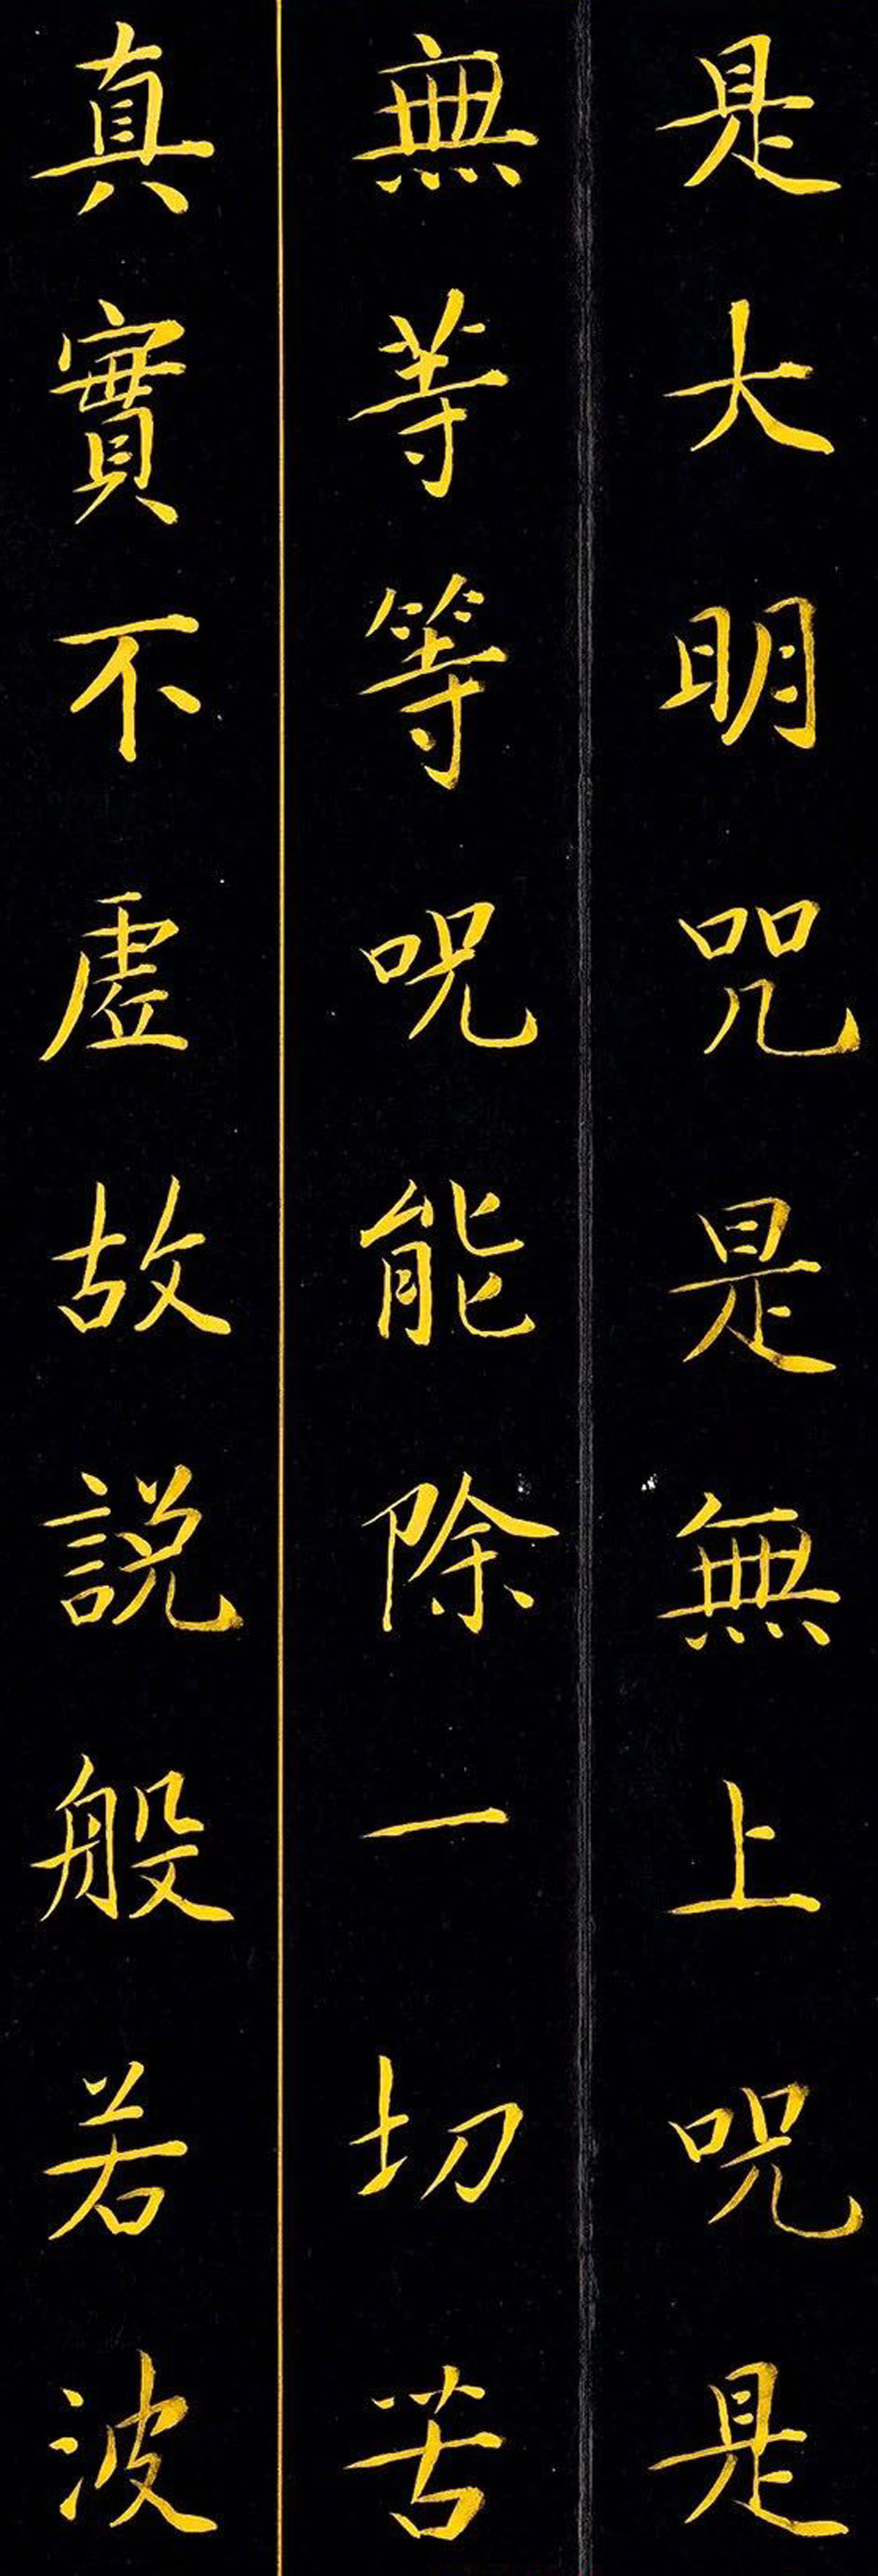 是大明咒是無上呪是
無等等呪能除一切苦
真實不虛故說般若波